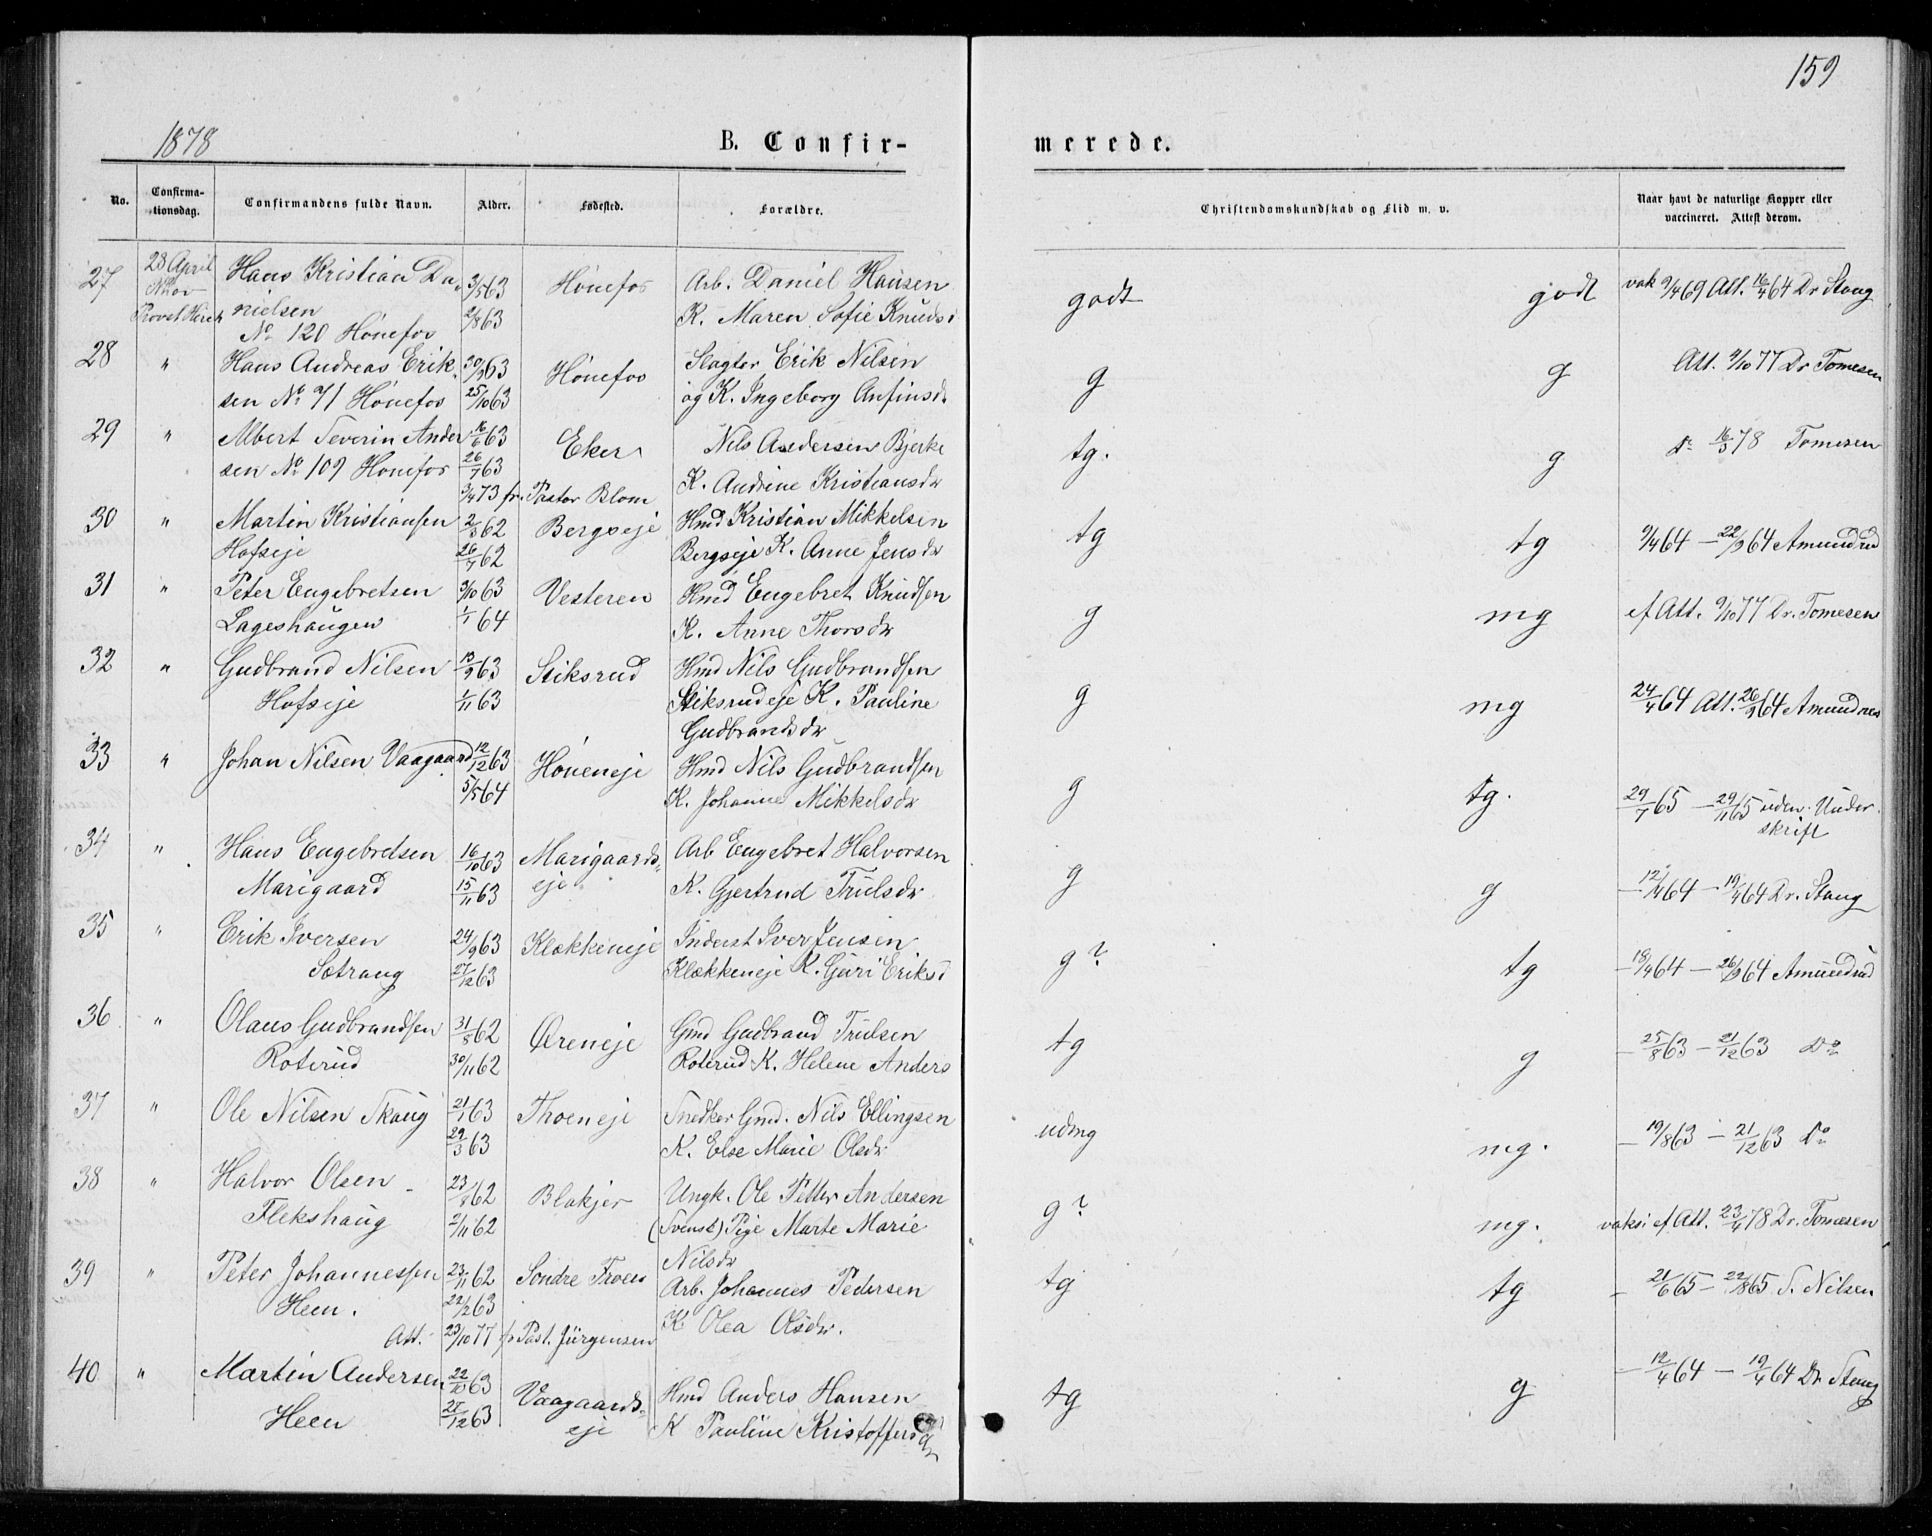 159
1878
B. Confirmerede.
No.
Confirmationsdag.
Confirmandens fulde Navn.
Alder.
Fødested.
Forældre.
Christendomskundskab og Flid m. v.
Naar havt de naturlige Kopper eller vaccineret. Attest derom.
27 28 April Hans Kristian Da- 3/5 63 Hønefos Arb. Daniel Hansen godt godt vak 9/4 69 Att. 16/4 64 Dr Stang
Provst Hirch nielsen 2/8 63 K. Maren Sofie Knudsd
No 120 Hønefos
28 " Hans Andreas Erik- 30/9 63 Hønefos Slagter Erik Nilsen g g Att. 9/10 77 Dr Tomesen
sen No 71 Hønefos 25/10 63 og K. Ingeborg Anfinsd.
29 " Albert Severin Ander 16/6 63 Eker Nils Andersen Bjerke tg. g Do 16/3 78 Tomesen
sen No 109 Hønefos 26/7 63 K. Andrine Kristiansdr
3/4 73 fr. Pastor Blom
30 " Martin Kristiansen 2/3 62 Bergseje Hmd Kristian Mikkelsen tg tg 9/4 64 — 22/9 64 Amundrud
Hofseje 26/4 62 Bergseje K. Anne Jensdr
31 " Peter Engebretsen 9/10 63 Vesteren Hmd Engebret Knudsen g mg ef Att. 9/10 77 Dr. Tomesen
Lageshaugen 1/1 64 K. Anne Thorsdr
32 " Gudbrand Nilsen 13/9 63 Stiksrud Hmd Nils Gudbrandsen g mg 24/4 64 Att. 26/9 64 Amundrud
Hofseje 1/11 63 Stiksrudeje K. Pauline
Gudbrandsdr
33 " Johan Nilsen Vaagaard 12/12 63 Høveneje Hmd Nils Gudbrandsen g tg. 29/7 65 — 29/11 65 uden Under
5/5 64 K. Johanne Mikkelsdr skrift
34 " Hans Engebretsen 16/10 63 Marigaards- Arb Engebret Halvorsen g g — 12/4 64 — 19/4 64 Dr. Stang
Marigaard 15/11 63 eje K. Gjertrud Trulsdr
35 " Erik Iversen 24/9 63 Klækkeneje Inderst Iver Jensen g? tg — 18/4 64 — 26/9 64 Amundrud
Sætrang 27/12 63 Klækkeneje K. Guri Eriksd
36 " Olaus Gudbrandsen 31/8 62 Øreneje Gmd Gudbrand Trulsen tg g — 25/8 63 — 21/12 63 Do
Roterud 30/11 62 Roterud K. Helene Anders
37 " Ole Nilsen Skaug 21/1 63 Thoeneje Snedker Gmd. Nils Ellingsen udmg mg. — 19/8 63 — 21/12 63 Do
29/3 63 K. Else Marie Olsdr
38 " Halvor Olsen 23/8 62 Blakjer Ungk. Ole Petter Andersen g? mg. vaksi ef Att. 23/4 78 Dr. Tomesen
Flekshaug 2/11 62 (Svensk) Pige Marte Marie
Nilsdr
39 " Peter Johannessen 23/11 62 Søndre Arb. Johannes Pedersen tg tg – 21/6 65 – 22/8 65 S. Nilsen
Heen. 22/2 63 K Olea Olsdr.
Att. 23/10 77 fr Past. Jürgensen
40 " Martin Andersen 22/10 63 Vaagaards- Hmd Anders Hansen tg g — 12/4 64 — 19/4 64 Dr. Stang
Heen 27/12 63 eje K Pauline Kristoffersdr